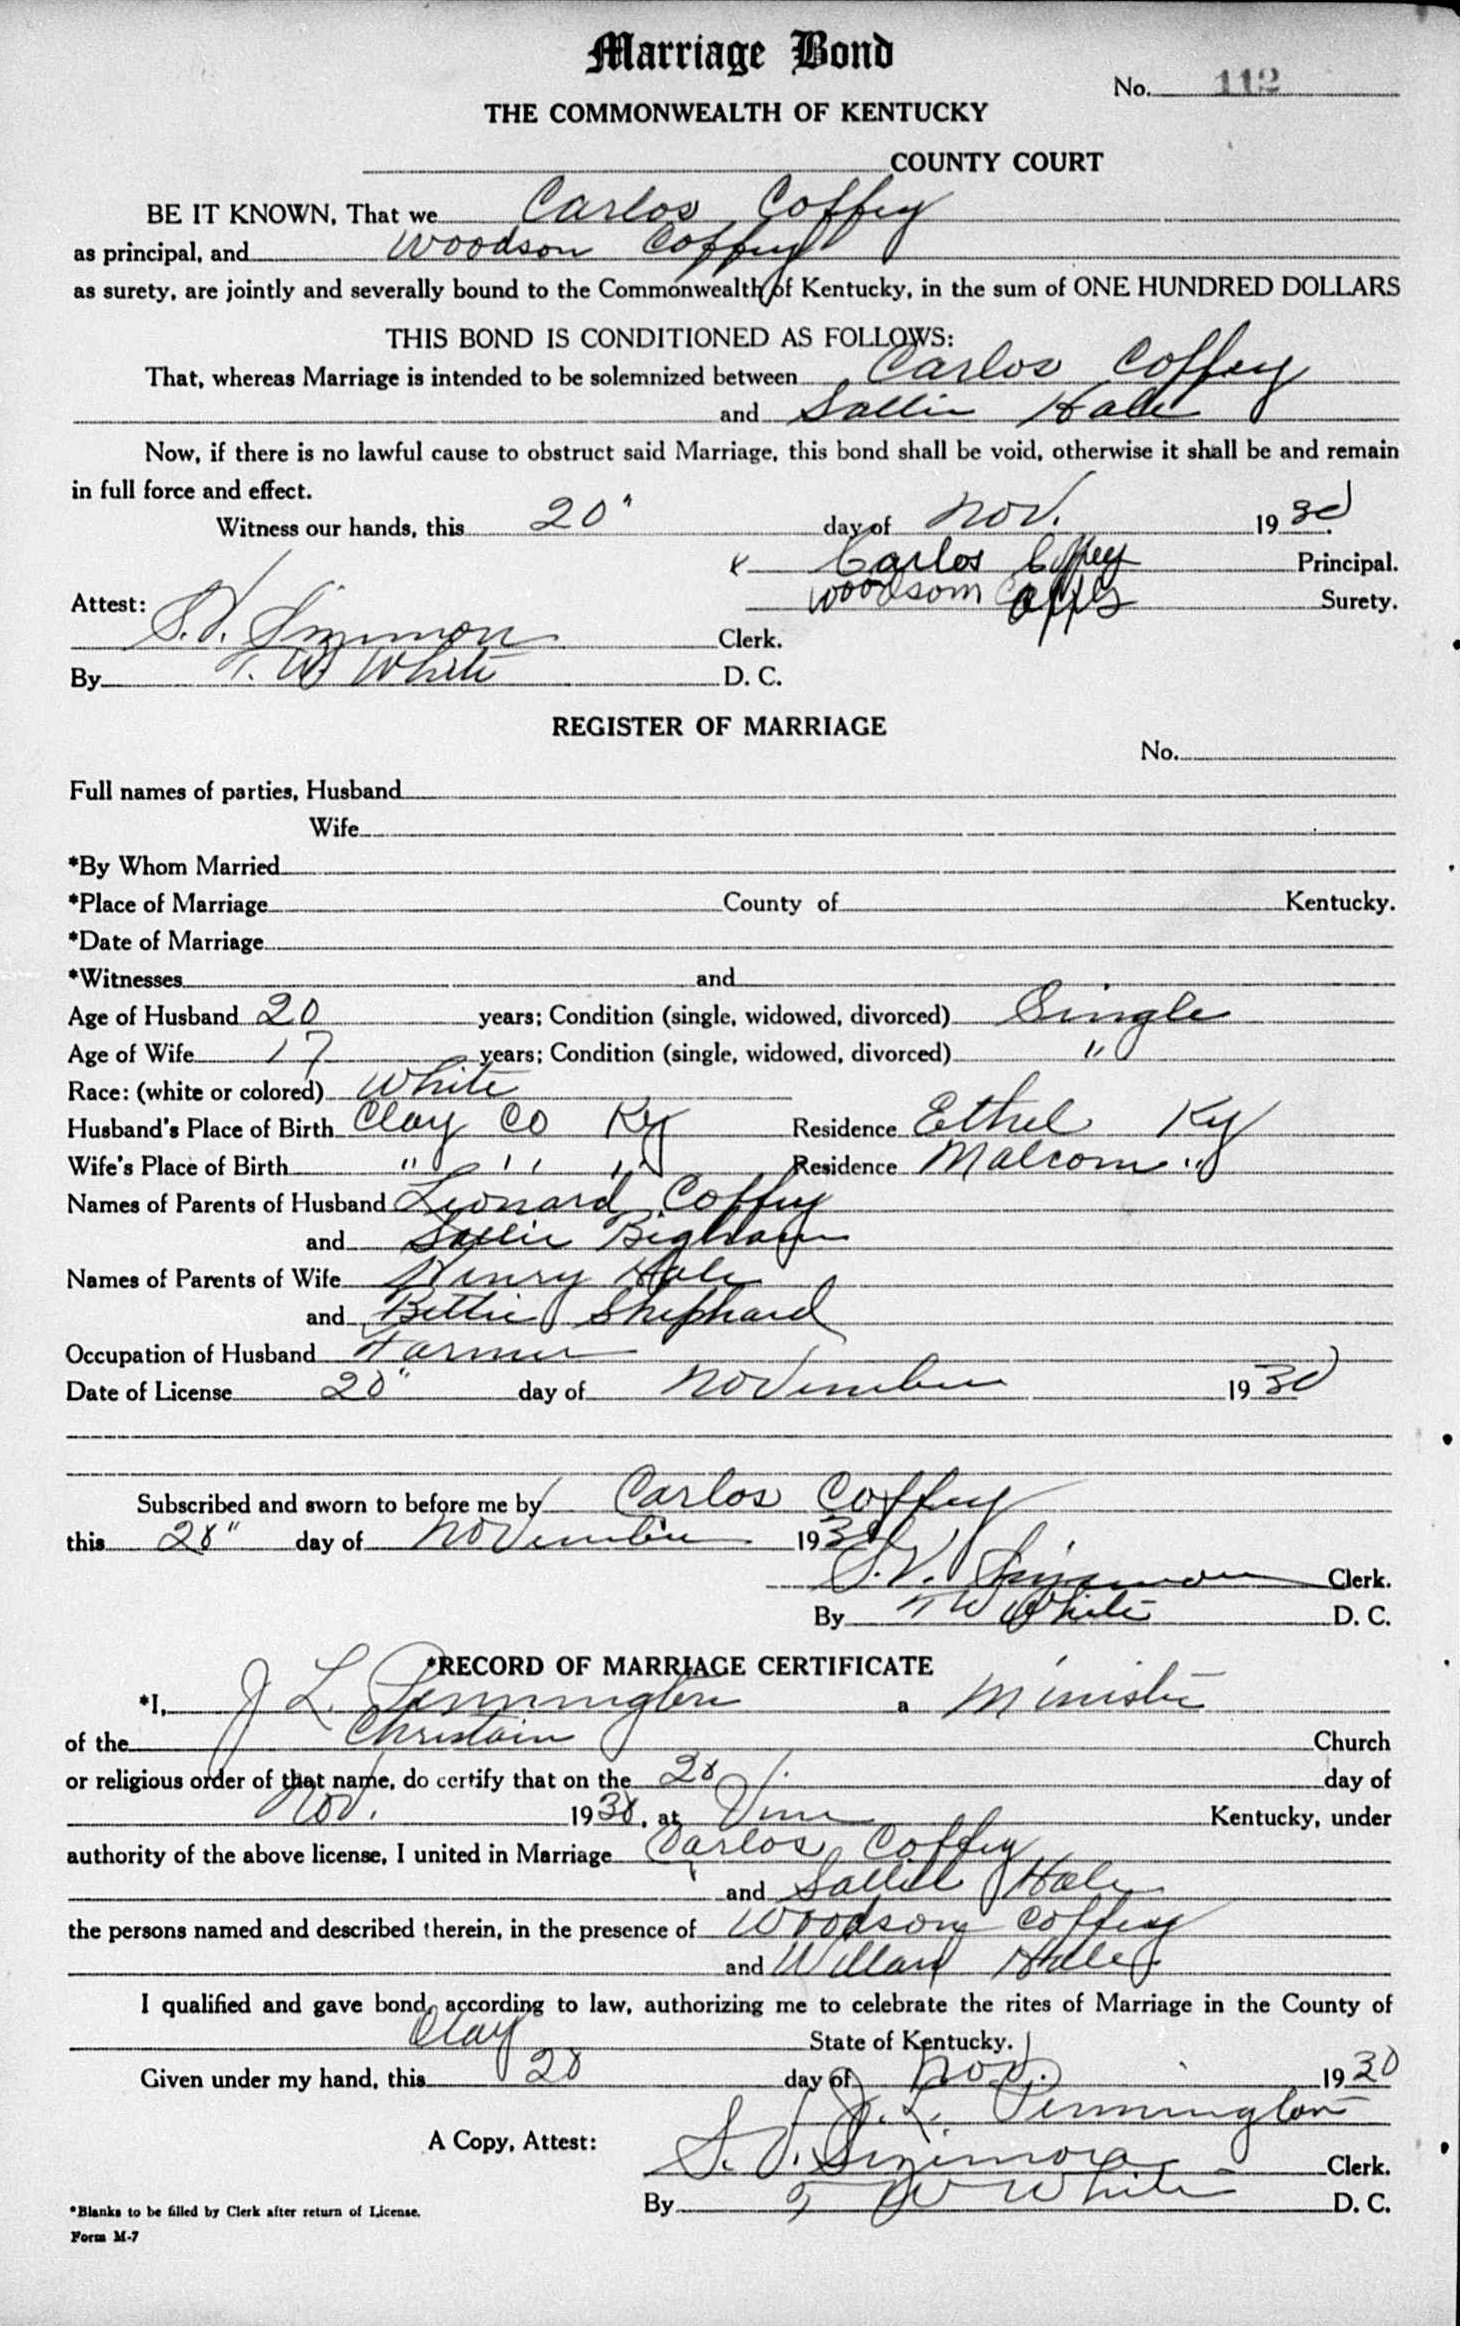 Marriage Bond
No. 112
THE COMMONWEALTH OF KENTUCKY
COUNTY COURT
BE IT KNOWN, That we Carlos Coffey
as principal, and Woodson Coffey
as surety, are jointly and severally bound to the Commonwealth of Kentucky, in the sum of ONE HUNDRED DOLLARS
THIS BOND IS CONDITIONED AS FOLLOWS:
That, whereas Marriage is intended to be solemnized between Carlos Coffey
and Sallie Hale
Now, if there is no lawful cause to obstruct said Marriage, this bond shall be void, otherwise it shall be and remain
in full force and effect.
Witness our hands, this 20" day of Nov. 1930
x Carlos Coffey Principal.
Attest: Woodsom Surety.
S.V. Clerk.
By T. W. White D. C.
REGISTER OF MARRIAGE
No.
Full names of parties, Husband
Wife
*By Whom Married
*Place of Marriage County of Kentucky.
*Date of Marriage
*Witnesses and
Age of Husband 20 years; Condition (single, widowed, divorced) Single
Age of Wife 17 years; Condition (single, widowed, divorced) "
Race: (white or colored) White
Husband's Place of Birth Clay Co Ky Residence Ethel Ky
Wife's Place of Birth " " " Residence Malcom "
Names of Parents of Husband Leonard Coffey
and Sallie
Names of Parents of Wife Henry Hale
and Bettie Shephard
Occupation of Husband Farmer
Date of License 20" day of November 1930
Subscribed and sworn to before me by Carlos Coffey
this 20" day of November 1930
S.V. Clerk.
By T W White D. C.
*RECORD OF MARRIAGE CERTIFICATE
*I, J L Pennington a Minister
of the Christain Church
or religious order of that name, do certify that on the 20 day of
Nov. 1930, at Vine Kentucky, under
authority of the above license, I united in Marriage Carlos Coffey
and Sallie Hale
the persons named and described therein, in the presence of Woodson Coffey
and Willard
I qualified and gave bond, according to law, authorizing me to celebrate the rites of Marriage in the County of
Clay State of Kentucky.
Given under my hand, this 20 day of Nov. 1930
J. L. Pennington
A Copy, Attest: S. V. Clerk.
By T W White D. C.
*Blanks to be filled by Clerk after return of License.
Form M-7